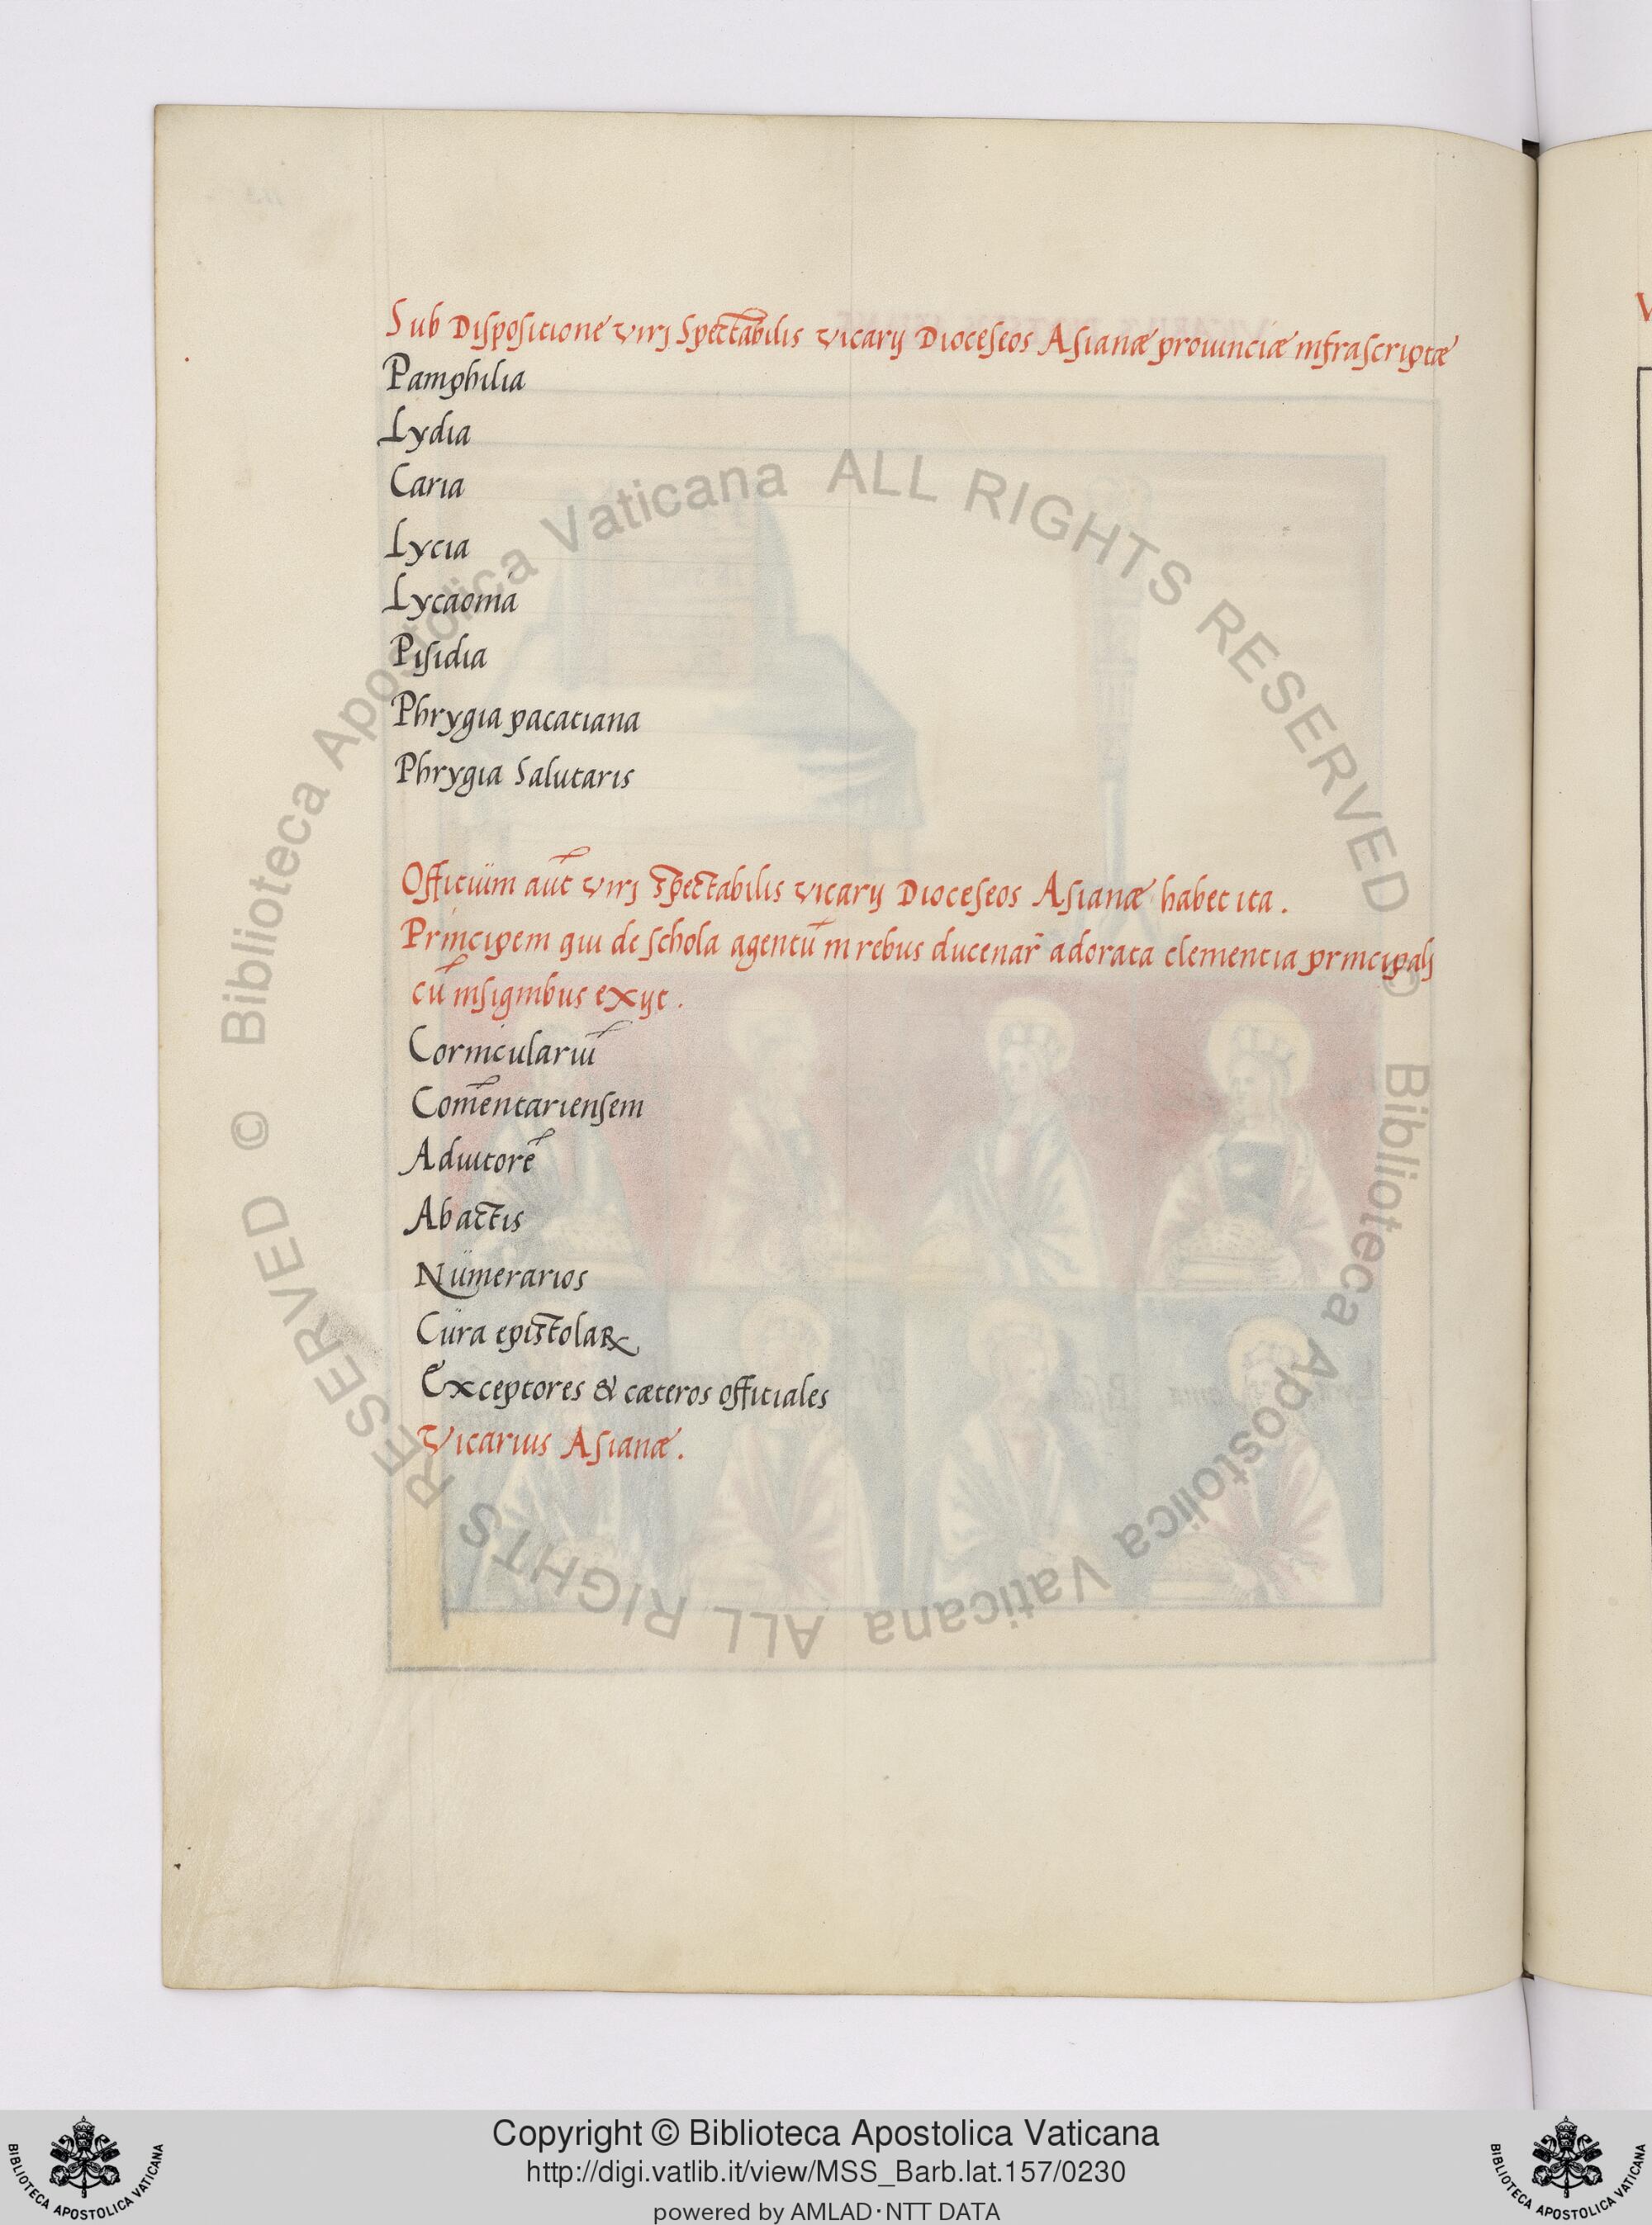 Sub Diſpoſitione virj Spectabilis vicarij Dioceſeos Aſianæ prouinciæ infraſcriptæ
Pamphilia
Lydia
Caria
Lycia
Lycaonia
Piſidia
Phrygia pacatiana
Phrygia Salutaris
Officium aut̄ virj Spectabilis vicarij Dioceſeos Aſianæ habet ita.
Principem qui de ſchola agentū in rebus ducenar̄ adorata clementia principalj
cū inſignibus exijt.
Corniculariū
Com̄entarienſem
Adiutorē
Ab actis
Numerarios
Cura epistolaꝝ
Exceptores & cæteros officiales
Vicarius Aſianæ.
© Biblioteca Apostolica Vaticana ALL RIGHTS RESERVED
© Biblioteca Apostolica Vaticana ALL RIGHTS RESERVED
Copyright © Biblioteca Apostolica Vaticana
http://digi.vatlib.it/view/MSS_Barb.lat.157/0230
powered by AMLAD·NTT DATA
BIBLIOTECA APOSTOLICA VATICANA
BIBLIOTECA APOSTOLICA VATICANA